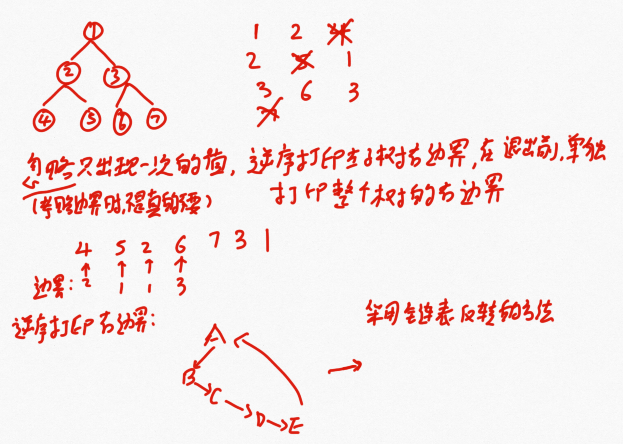 1
2 3
4 5 6 7
1 2 4
2 5 1
3 6 3
7
忽略只出现一次的值，逆序打印左子树右边界，在退出前，单独
打印整个树的右边界
(考虑边界时，
4 5 2 6 7 3 1
边界: 2 1 1 3
逆序打印右边界:
采用链表反转的方法
A
B
C
D
E